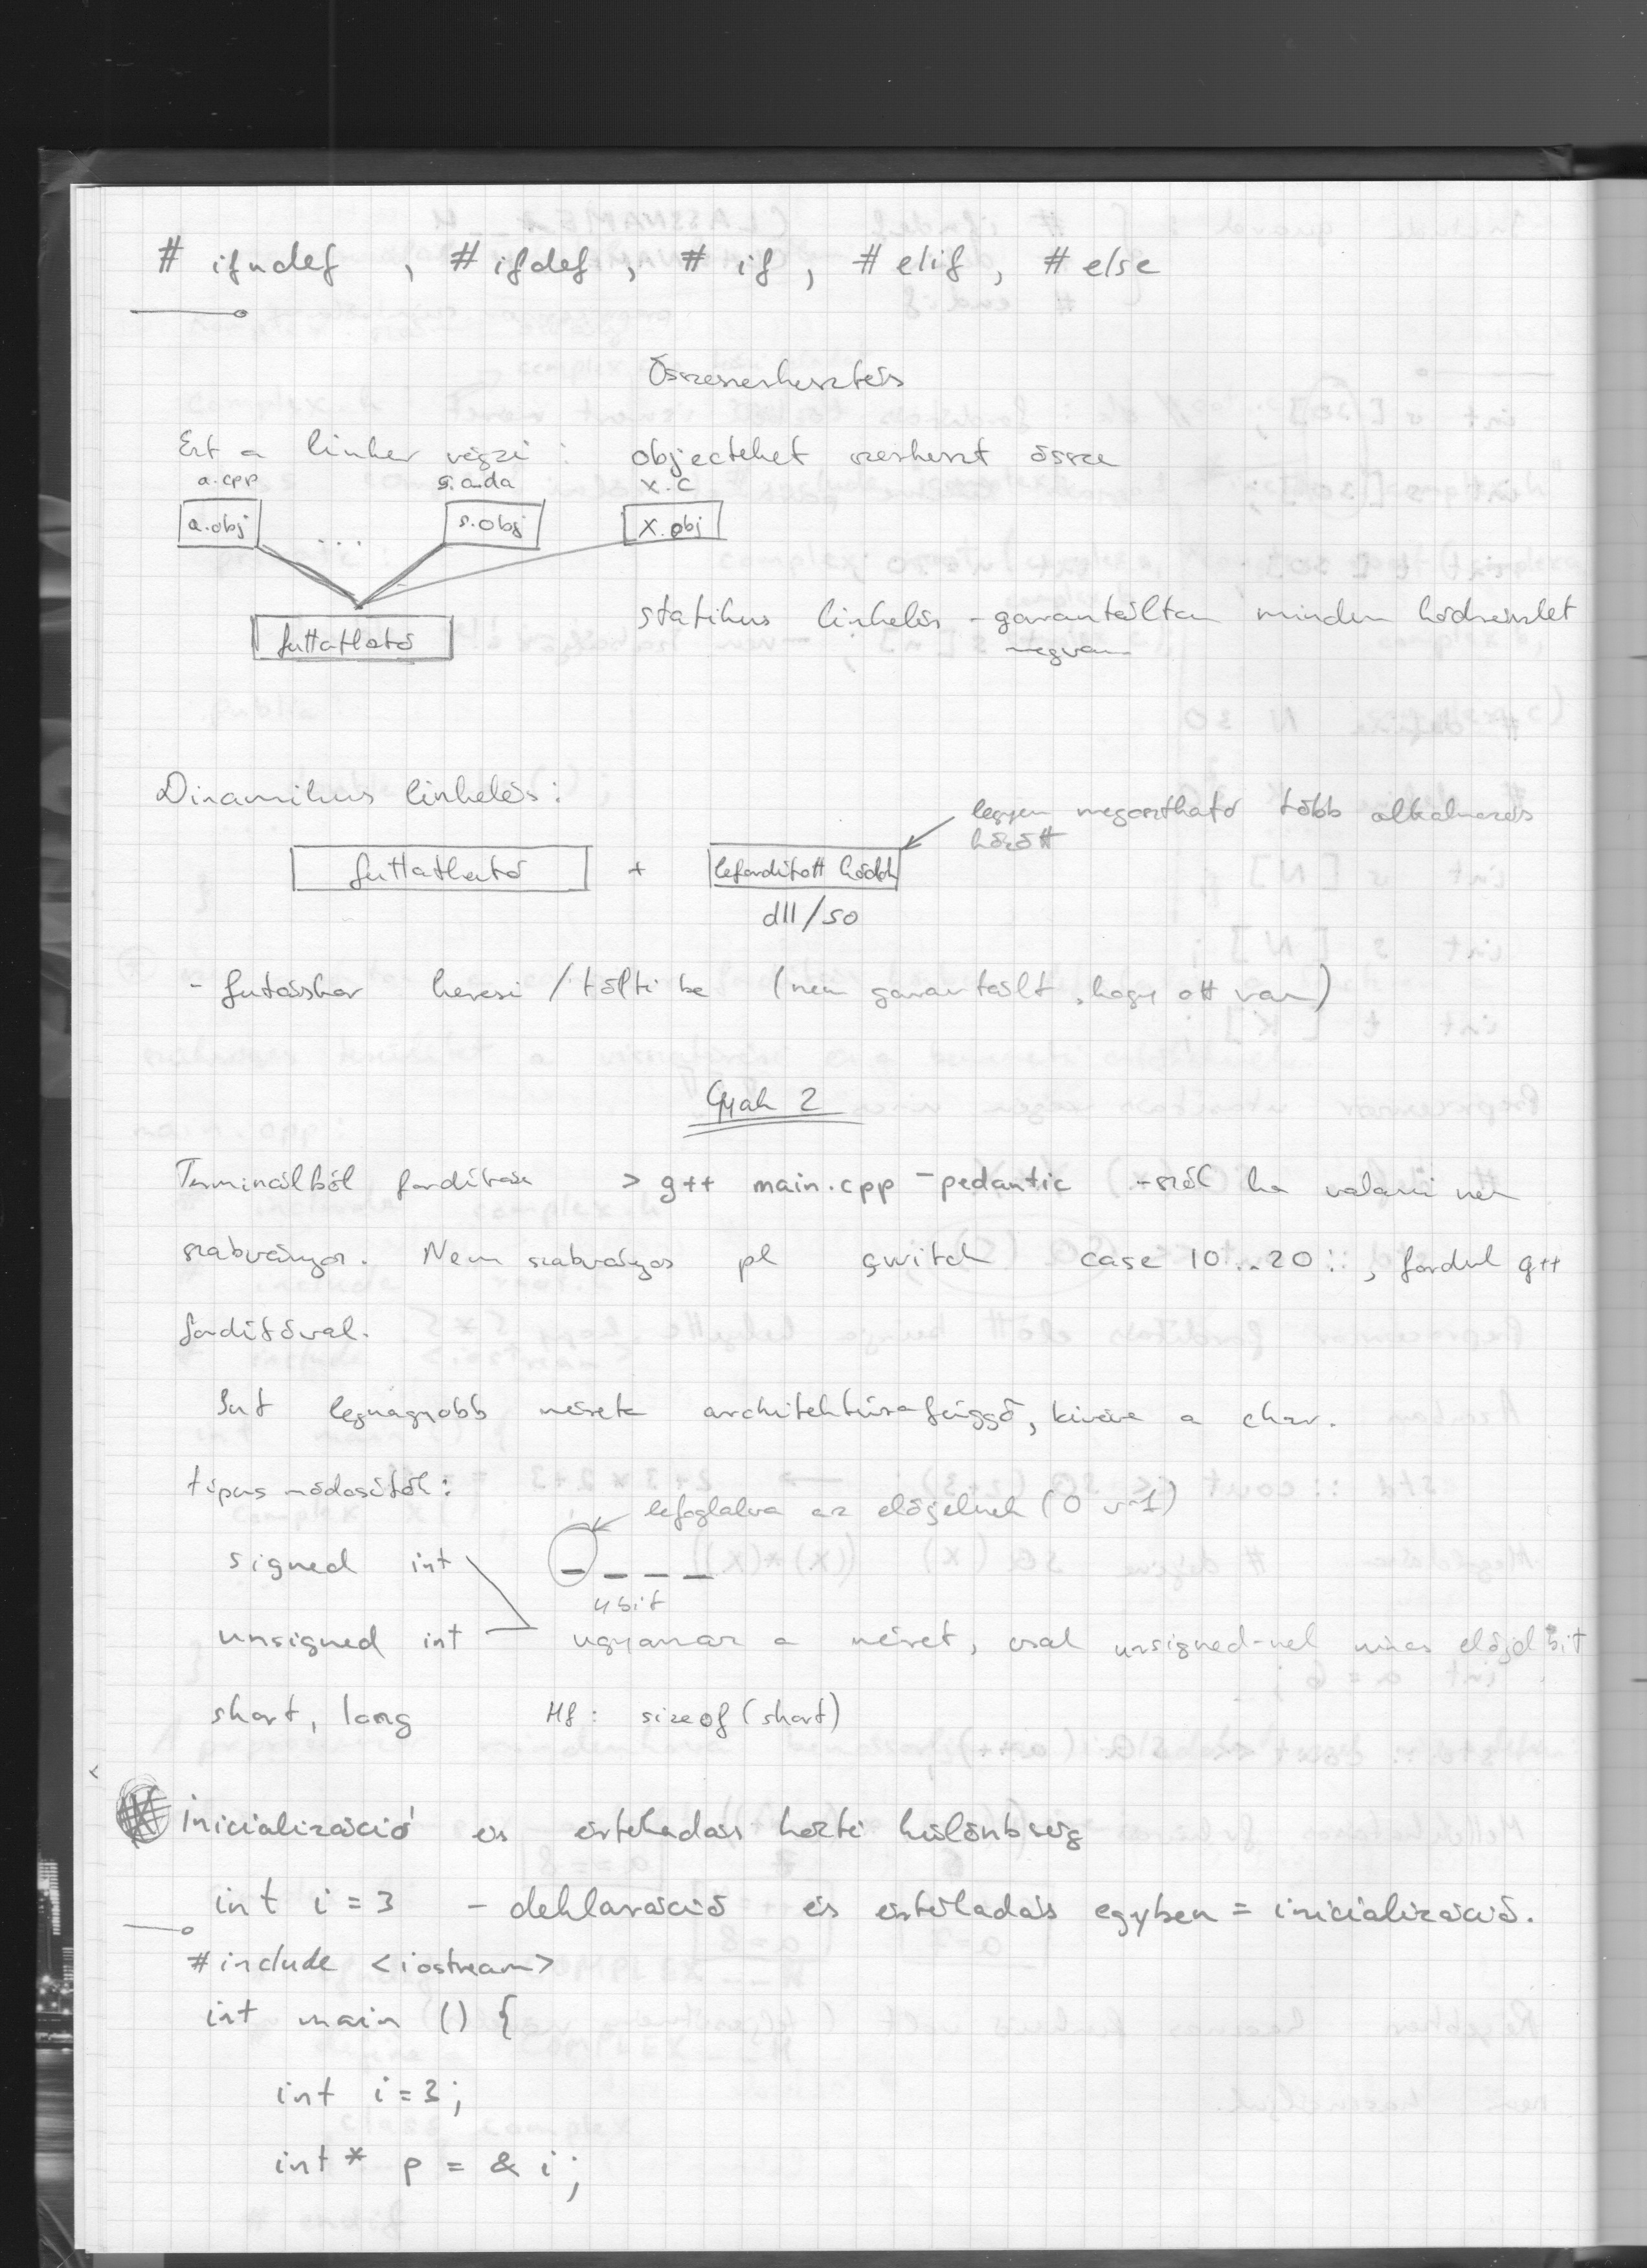 # ifndef , # ifdef , # if , # elif , # else
Összeszerkesztés
Ezt a linker végzi : objecteket szerkeszt össze
a.cpp s.ada x.c
a.obj ... s.obj x.obj
futtatható
statikus linkelés - garantáltan minden kódrészlet
megvan
Dinamikus linkelés :
legyen megosztható több alkalmazás
között
futtatható + lefordított kódok
dll/so
- futáskor keresi / tölti be (nem garantált, hogy ott van)
Gyak 2
Terminálból fordítás > g++ main.cpp -pedantic - szól ha valami nem
szabványos. Nem szabványos pl switch case 10...20 : , fordul g++
fordítóval.
Int legnagyobb mérete architektúrafüggő, kivéve a char.
típus módosítók :
lefoglalva az előjelnek (0 v 1)
signed int
4 bit
unsigned int ugyanaz a méret, csak unsigned-nel nincs előjel bit
short, long Hf : sizeof (short)
Inicializáció és értékadás közti különbség
int i = 3 - deklaráció és értékadás egyben = inicializáció.
# include <iostream>
int main () {
int i = 3 ;
int * p = & i ;